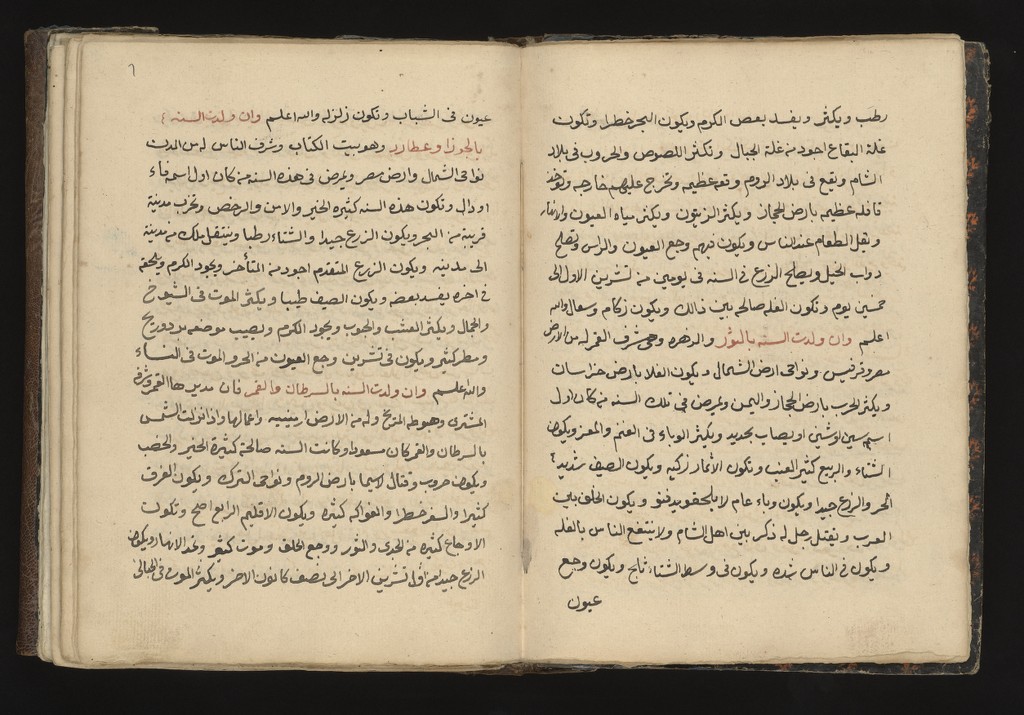 رطب ويكثر ويفسد بعض الكرم ويكون البحر خطرا وتكون
غلة البقاع اجود من غلة الجبال وتكثر اللصوص والحروب في بلاد
الشام ويقع في بلاد الروم وقعه عظيمه وتخرج عليهم خارجه وتوخذ
قافله عظيمه بارض الحجاز ويكثر الزيتون ويكثر مياه العيون والانهار
ويقل الطعام عند الناس ويكون فيهم وجع العيون والراس وتصلح
دواب الخيل ويصلح الزرع في السنه في يومين من تشرين الاول الى
خمسين يوم وتكون الغله صالحه بين ذالك ويكون زكام وسعال والله
اعلم وان ولدت السنه بالثور والزهره وهي شرف القمر له من الارض
مصر وفرنيس ونواحي ارض الشمال ويكون الغلا بارض خراسان
ويكثر الحرب بارض الحجاز واليمن ويمرض في تلك السنه من كان اول
اسمه سين اوشين اويصاب بحديد ويكثر الوباء في الغنم والمعز ويكون
الشتاء والربيع كثير العشب وتكون الاثمار زكيه ويكون الصيف شديد
الحر والزرع جيدا ويكون وباء عام لا يلحقو يدفنو ويكون الخلف بين
العرب ويقتل رجل له ذكر بين اهل الشام ولا ينتفع الناس بالغله
ويكون في الناس شده ويكون في وسط الشتاء ثلج ويكون وجع
عيون
٦
عيون في الشباب وتكون زلزله والله اعلم وان ولدت السنه
بالجوزا وعطارد وهو بيت الكتاب وشرف الناس له من المدن
نواحي الشمال وارض مصر ويمرض في هذه السنه من كان اول اسمه فاء
او دال وتكون هذه السنه كثيره الخير والامن والرخص وتخرب مدينة
قريبة من البحر ويكون الزرع جيدا والشتاء رطبا وينتقل ملك من مدينة
الى مدينه ويكون الزرع المتقدم اجود من المتأخر ويجود الكرم ويلحقه
في اخره يفسد بعضه ويكون الصيف طيبا ويكثر الموت في الشيوخ
والجمال ويكثر العشب والحبوب ويجود الكروم ويصيب موضعه برد وريح
ومطر كثير ويكون في تشرين وجع العيون من الحر والموت في النساء
والله اعلم وان ولدت السنه بالسرطان والقمر فان مديرها القمر وشرف
المشتري وهبوط المريخ وله من الارض ارمينيه واعمالها واذا نزلت الشمس
بالسرطان والقمر كان مسعودا وكانت السنه صالحة كثيرة الخير والخصب
ويكون حروب وقتال لاسيما بارض الروم ونواحي الترك ويكون الغرق
كثيرا والسفر خطرا والفواكه كثيره ويكون الاقليم الرابع اصح وتكون
الاوجاع كثيره من الجدري والثور ووجع الحلق وموت كثير وتمد الانهار ويكون
الزرع جيدا من أول تشرين الاخر الى نصف كانون الاخر ويكثر الموت في الحبالى